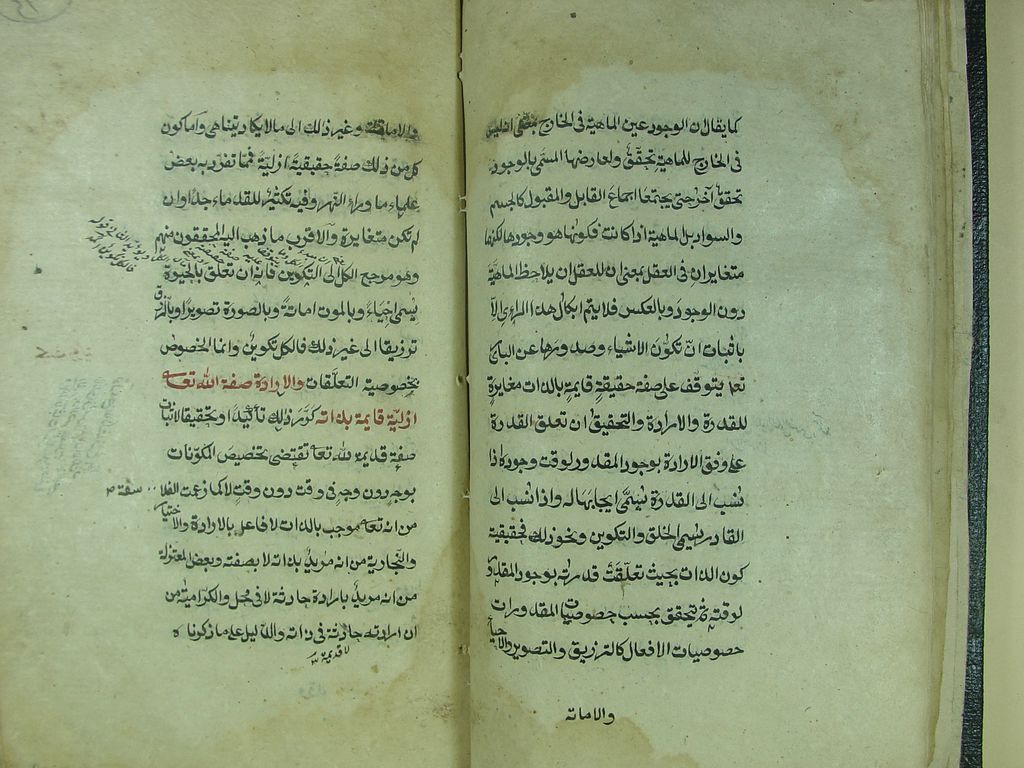 كما يقال ان الوجود عين الماهية فى الخارج بمعنى انه ليس
فى الخارج للماهية تحقق ولعارضها المسمى بالوجود
تحقق آخر حتى يجتمعا اجتماع القابل والمقبول كالجسم
والسواد بل الماهية اذا كانت فكونها هو وجودها لكنهما
متغايران فى العقل بمعنى ان للعقل ان يلاحظ الماهية
دون الوجود وبالعكس فلا يتم ابطال هذا الرأى الا
باثبات ان تكون الاشياء وصدورها عن البارى
تعالى يتوقف على صفة حقيقية قايمة بالذات مغايرة
للقدرة والارادة والتحقيق ان تعلق القدرة
على وفق الارادة بوجود المقدور لوقت وجوده اذا
نسب الى القدرة يسمى ايجابها له واذا نسب الى
القادر يسمى الخلق والتكوين ونحو ذلك فحقيقته
كون الذات بحيث تعلقت قدرته بوجود المقدور
لوقته ثم يتحقق بحسب خصوصيات المقدورات
خصوصيات الافعال كالترزيق والتصوير والاحياء
والاماته
والاماتة وغير ذلك الى ما لا يكاد يتناهى واما كون
كل من ذلك صفة حقيقية ازلية فمما تفرد به بعض
علماء ما وراء النهر وفيه تكثير للقدماء جدا وان
لم تكن متغايرة والاقرب ما ذهب اليه المحققون منهم
وهو مرجع الكل الى التكوين فانه ان تعلق بالحيوة
يسمى احياء وبالموت اماتة وبالصورة تصويرا وبالرزق
ترزيقا الى غير ذلك فالكل تكوين وانما الخصوص
بخصوصية التعلقات والارادة صفة الله تعالى
ازلية قايمة بذاته كرر ذلك تأكيدا وتحقيقا لاثبات
صفة قديمة لله تعالى تقتضى تخصيص المكونات
بوجه دون وجه وفى وقت دون وقت لا كما زعمت الفلاسفة
من انه تعالى موجب بالذات لا فاعل بالارادة والاختيار
والنجارية من انه مريد بذاته لا بصفته وبعض المعتزلة
من انه مريد بارادة حادثة لا فى محل والكرامية من
ان ارادته حادثة فى ذاته والدليل على ما ذكرناه
لا قديمة